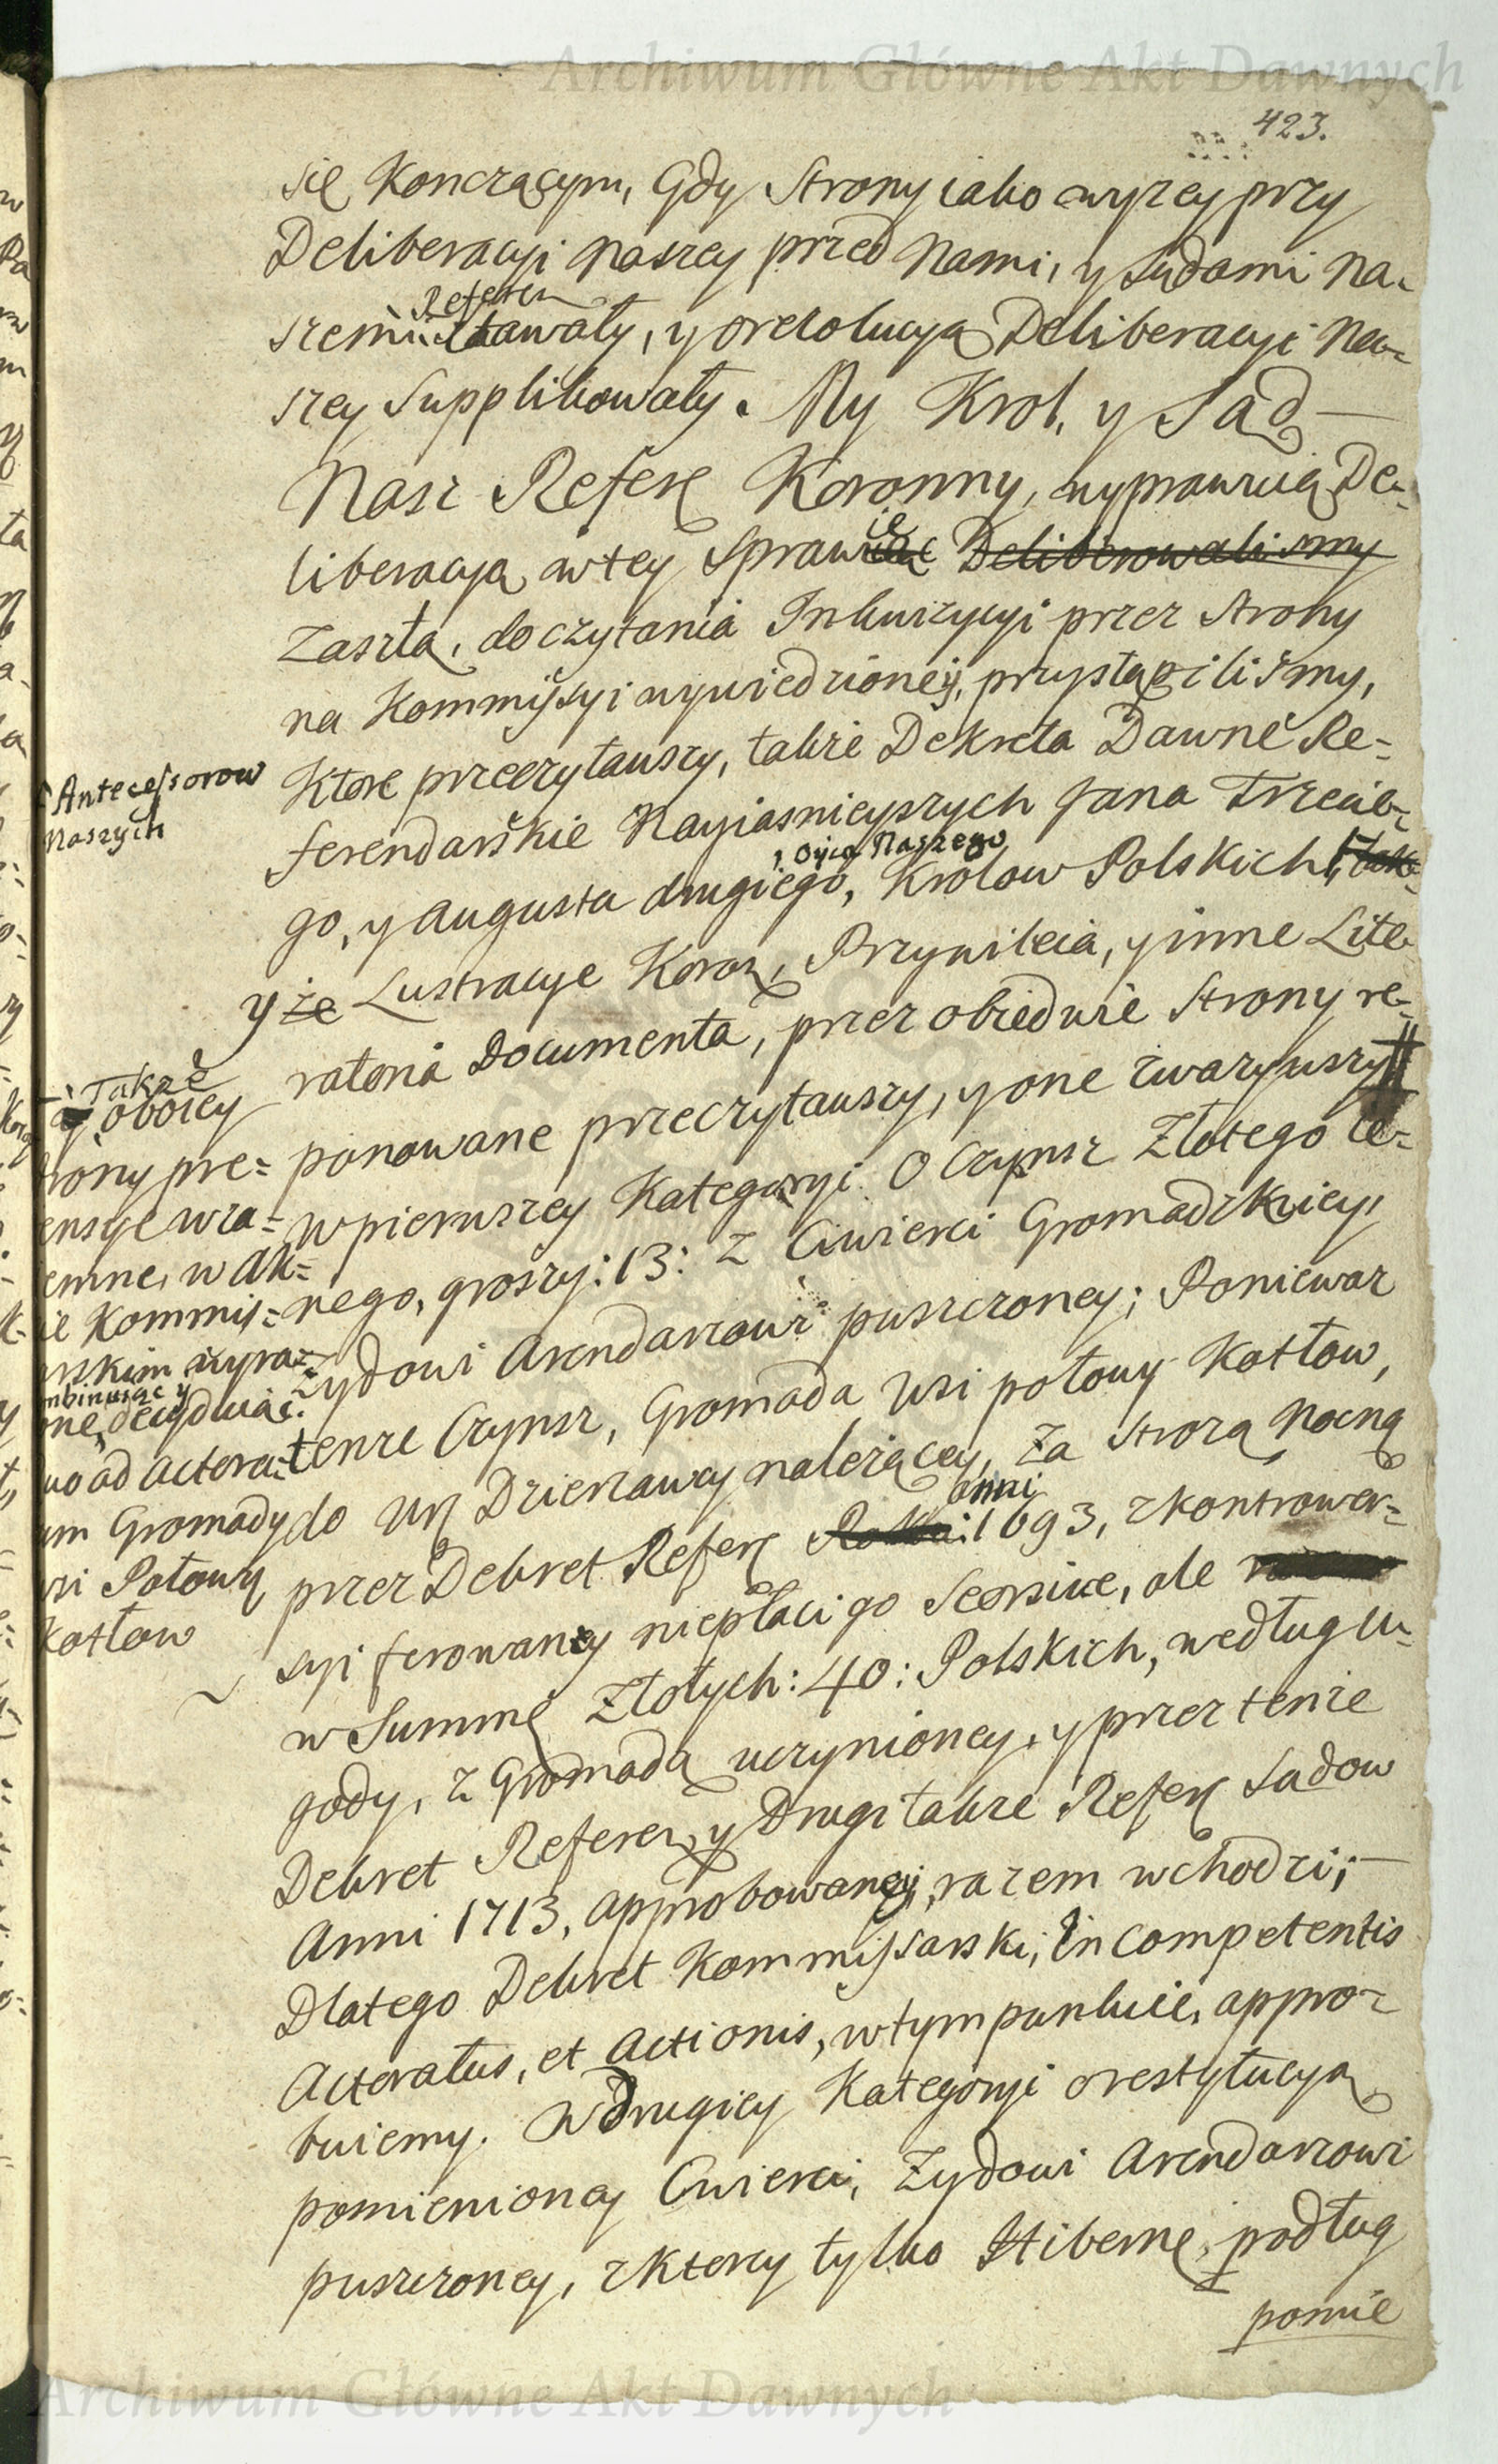 Archiwum Główne Akt Dawnych
423.
się Konczącym, Gdy Strony iako wyzey przy
Deliberacyi naszey przed Nami, y Sądami na-
Referen
szemi stawały, y orezolucyą Deliberacyi Na-
szey Supplikowały. My Krol, y Sąd
Nasz Referen Koronny, wyprawuią De-
liberacyą w tey Sprawie Deliberowalismy
Zaszłą, do czytania Inkwizycyi przez Strony
na Kommissyi wywiedzioney, przystąpilismy,
Ktore przeczytawszy, także Dekreta Dawne Re-
Antecessorow
Naszych
ferendarskie Nayiasnieyszych Jana Trzecie-
, Oyca Naszego
go, y Augusta drugiego, Krolow Polskich,
y że Lustracye Koron, Przywileia, y inne Lite-
ratoria Documenta, przez obiedwie Strony re-
ponowane przeczytawszy, y one zważywszy
w pierwszey Kategoryi O Czynsz Złotego le-
nego, groszy: 13: z Cwierci Gromadzkiey,
Zydowi Arendarzowi puszczoney; Poniewaz
tenze Czynsz, Gromada Wsi połowy Kotłow,
do Ur Dzierzawcy należącey, za Strożą nocną
anni
przez Dekret Referen 1693, z kontrower-
syi ferowaney niepłaci go Seorsive, ale
w Summę Złotych: 40: Polskich, według u-
gody, z Gromadą uczynioney, y przez tenże
Dekret Referen, y Drugi także Referen Sądow
Anni 1713, approbowaney, razem wchodzi;
Dlatego Dekret Kommissarski, in Competentis
Actoratus, et Actionis, w tym punkcie, appro-
buiemy. W Drugiey Kategoryi o restytucyą
pomienioney Cwierci, Zydowi Arendarzowi
puszczoney, z ktorey tylko Hibernę, podług
pomie
Także
obojey
rony pre-
ensye wza-
iemne, w Ak-
ie Kommis-
arskim wyra-
mbinuiąc y
one, decyduiąc.
uo ad Actora-
um Gromady
wsi Połowy
Kotłow
Archiwum Główne Akt Dawnych